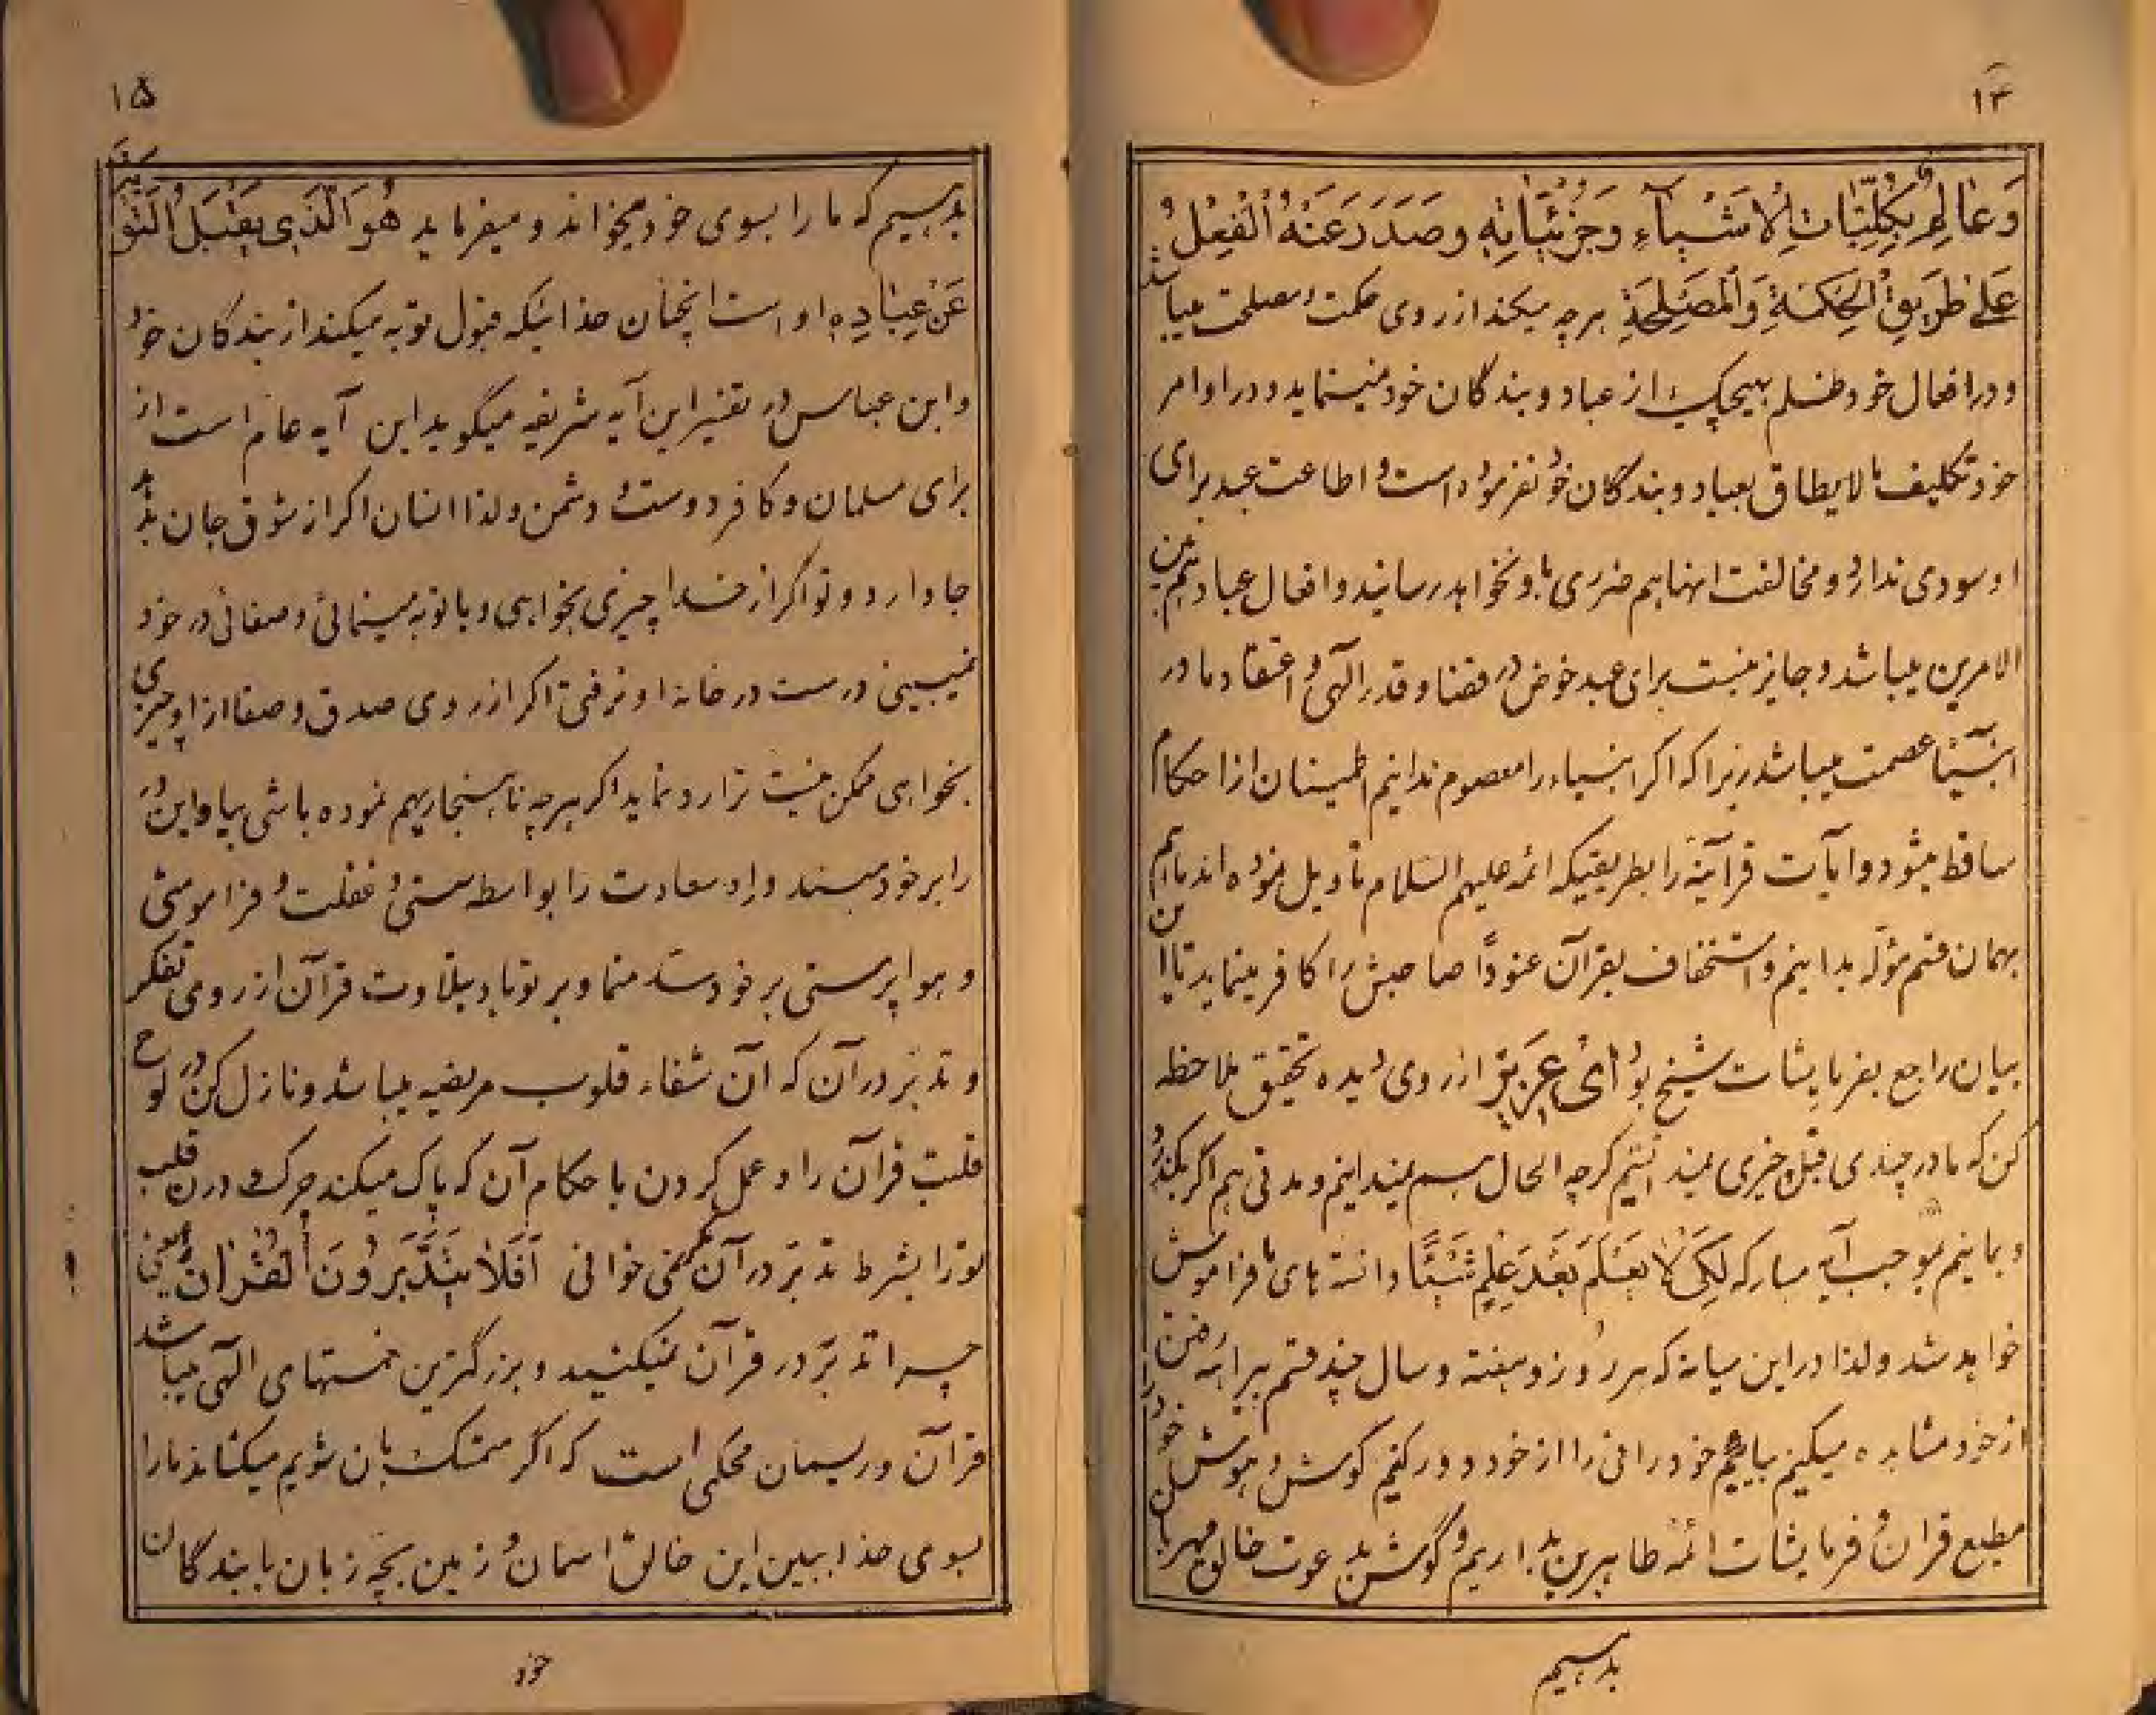 ۱۴
وَعَالِمٌ بِكُلِّيَّاتِ الْاَشْيٰآءِ وَجُزْئِيّٰاتِهٖ وصَدَرَ عَنْهُ الْفِعْلُ
عَلٰى طَرِيقِ الْحِكْمَةِ وَالْمَصْلَحَةِ هرچه میکند از روی حکمت و مصلحت میباشد
و در افعال خود ظلم بهیچیک از عباد و بندگان خود نمینماید و در اوامر
خود تکلیف ما لایطاق بعباد و بندگان خود نفرموده است و اطاعت عبد برای
او سودی ندارد و مخالفت انها هم ضرری باو نخواهد رسانید و افعال عباد هم بین
الامرین میباشد و جایز نیست برای عبد خوض در قضا و قدر الهی و اعتقاد ما در
انبیا عصمت میباشد زیرا که اگر انبیاء را معصوم ندانیم اطمینان از احکام
ساقط میشود و ایات قرآنیه را بطریقیکه ائمه علیهم السلام تاویل نموده اند ما هم
بهمان قسم مؤل بدانیم و استخفاف بقرآن عنوداً صاحبش را کافر مینماید تا این
بیان راجع بفرمایشات شیخ بود اَی عَزِیز از روی دیده تحقیق ملاحظه
کن که ما در چندی قبل چیزی نمیدانستیم گرچه الحال هم نمیدانیم و مدتی هم اگر بگذرد
و بمانیم بموجب آیه مبارکه لِكَيْ لٰا يَعْلَمَ بَعْدَ عِلْمٍ شَيْئًا دانسته های ما فراموش
خواهد شد ولذا در این میانه که هر روز و هفته و سال چند قسم بیراهه رفتن را
از خود مشاهده میکنیم بیائیم خود رائی را از خود دور کنیم گوش و هوش خود را
مطیع قران و فرمایشات ائمه طاهرین بداریم و گوش بدعوت خالق مهربان
بدهیم
۱۵
بدهیم که ما را بسوی خود میخواند و میفرماید هُوَ الَّذِی یَقْبَلُ التَّوْبَةَ
عَنْ عِبٰادِهِ او است انچنان خدائیکه قبول توبه میکند از بندگان خود
و ابن عباس در تفسیر این آیه شریفه میگوید این آیه عام است از
برای مسلمان و کافر دوست و دشمن ولذا انسان اگر از شوق جان بدهد
جا دارد و تو اگر از خدا چیزی بخواهی و یا توبه مینمائی و صفائی در خود
نمیبینی درست در خانه او نرفتی اگر از روی صدق و صفا از او چیزی
بخواهی ممکن نیست ترا رد نماید اگر هرچه ناهنجار هم نموده باشی بیا و این در
را بر خود مبند و راه سعادت را بواسطه سستی و غفلت و فراموشی
و هوا پرستی بر خود سد منما و بر تو باد بتلاوت قرآن از روی تفکر
و تدبر در آن که آن شفاء قلوب مریضه میباشد و نازل کن در لوح
قلبت قرآن را و عمل کردن باحکام آن که پاک میکند چرک و درن قلب
تو را بشرط تدبر در آن نمیخوانی اَفَلٰا یَتَدَبَّرُونَ الْقُرْاٰنَ یعنی
چرا تدبر در قرآن نمیکنید و بزرگترین نعمتهای الهی میباشد
قرآن و ریسمان محکمی است که اگر متمسک بان شویم میکشاند ما را
بسوی خدا ببین این خالق اسمان و زمین بچه زبان با بندگان
خود